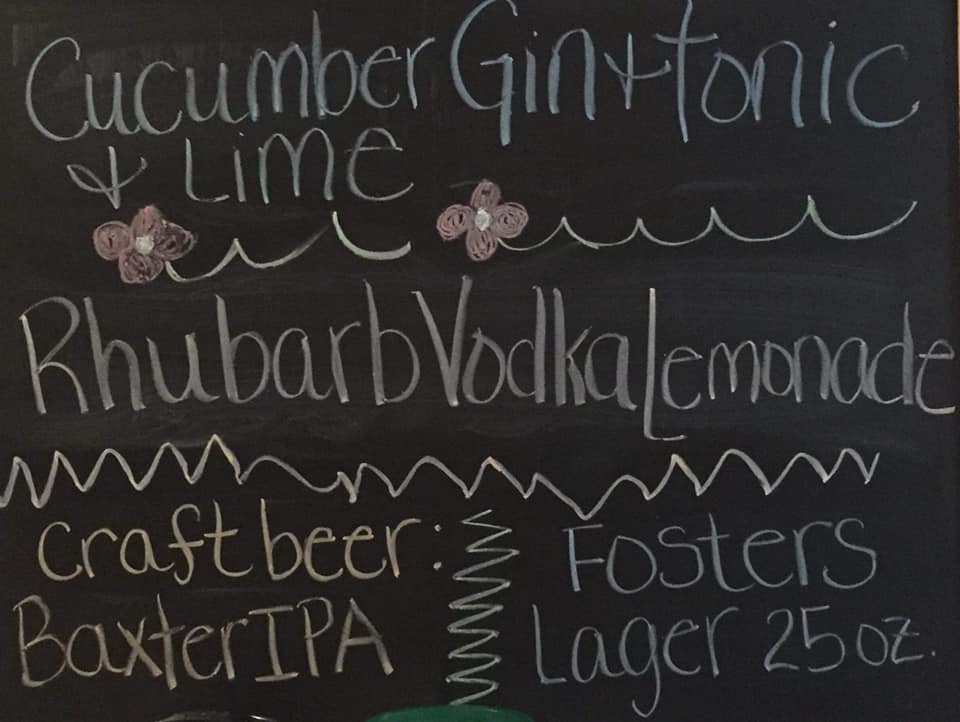 Cucumber Gin + tonic
& Lime
Rhubarb Vodka Lemonade
Craft beer:
Baxter IPA
Fosters
Lager 25 oz.